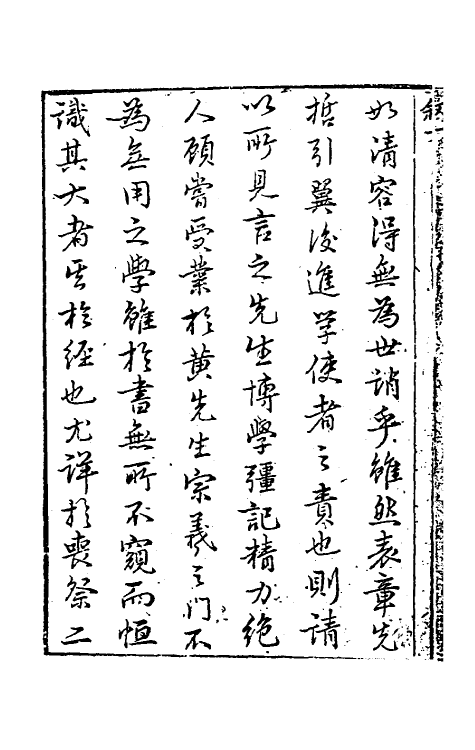 如清容得無為世誚乎雖然表章先
哲引翼後進學使者之責也則請
以所見言之先生博學彊記精力絶
人顧嘗受業於黄先生宗羲之門不
為無用之學雖於書無所不窺而恒
識其大者其於經也尤詳於喪祭二